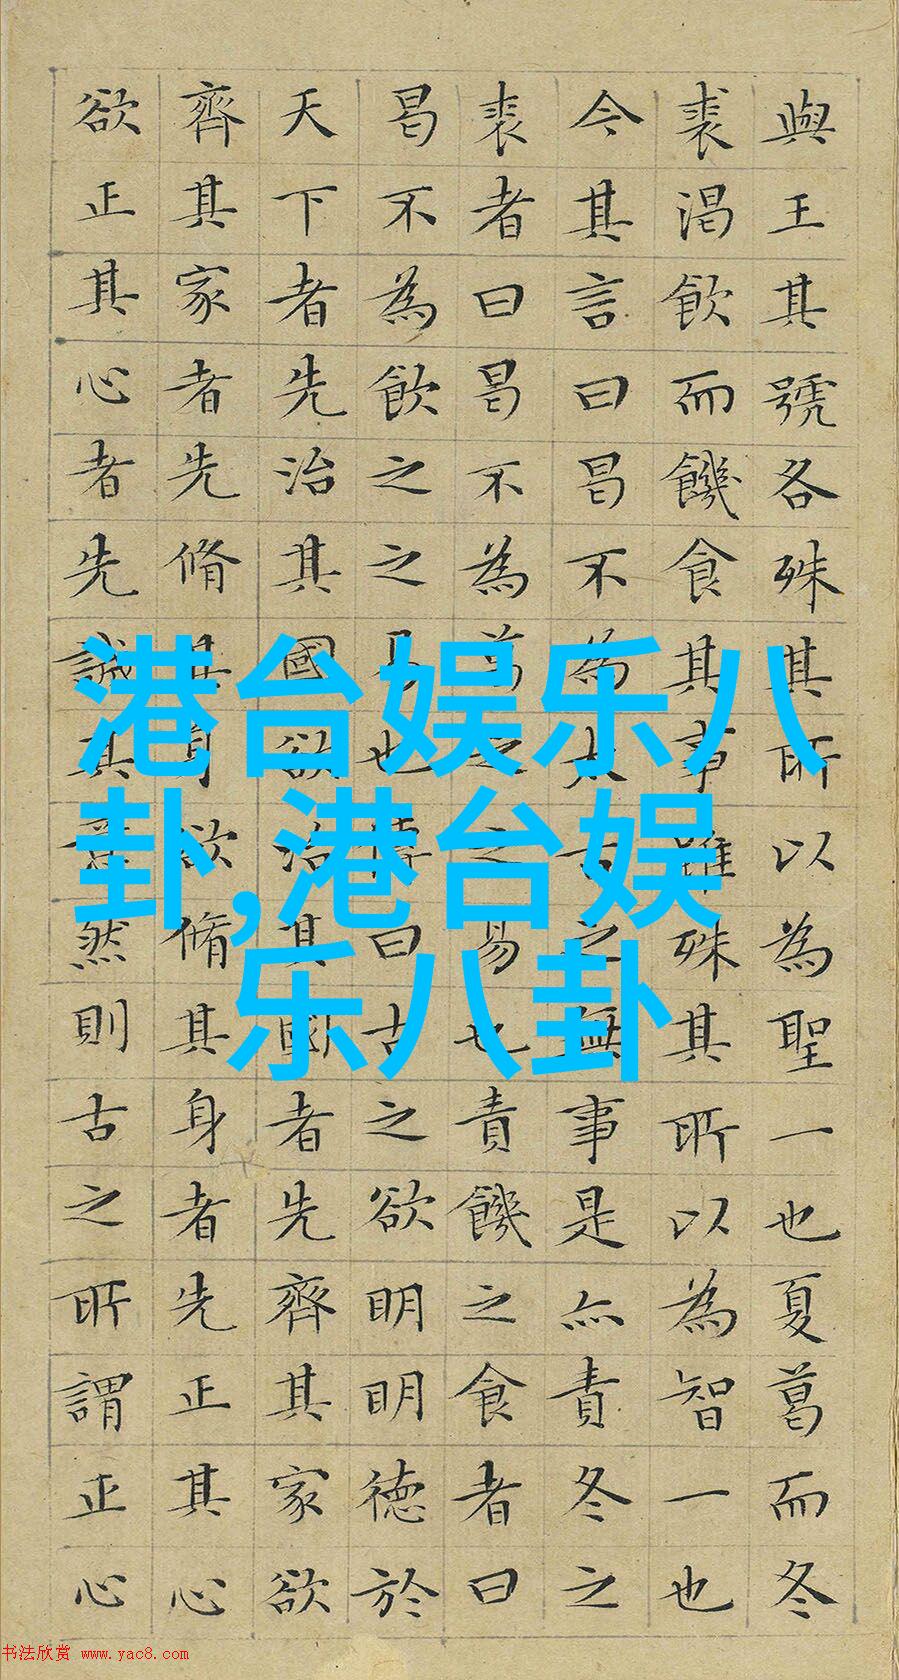 與王其號各殊其所以為聖一也夏葛而冬
裘渴飲而饑食其事雖殊其所以為智一也
今其言曰曷不為太古之無事是亦責冬之
裘者曰曷不為葛之之易也責饑之食者曰
曷不為飲之之易也傳曰古之欲明明德於
天下者先治其國欲治其國者先齊其家欲
齊其家者先脩其身欲脩其身者先正其心
欲正其心者先誠其意然則古之所謂正心
港台娱乐八
卦,港台娱
乐八卦
书法欣赏 www.yac8.com